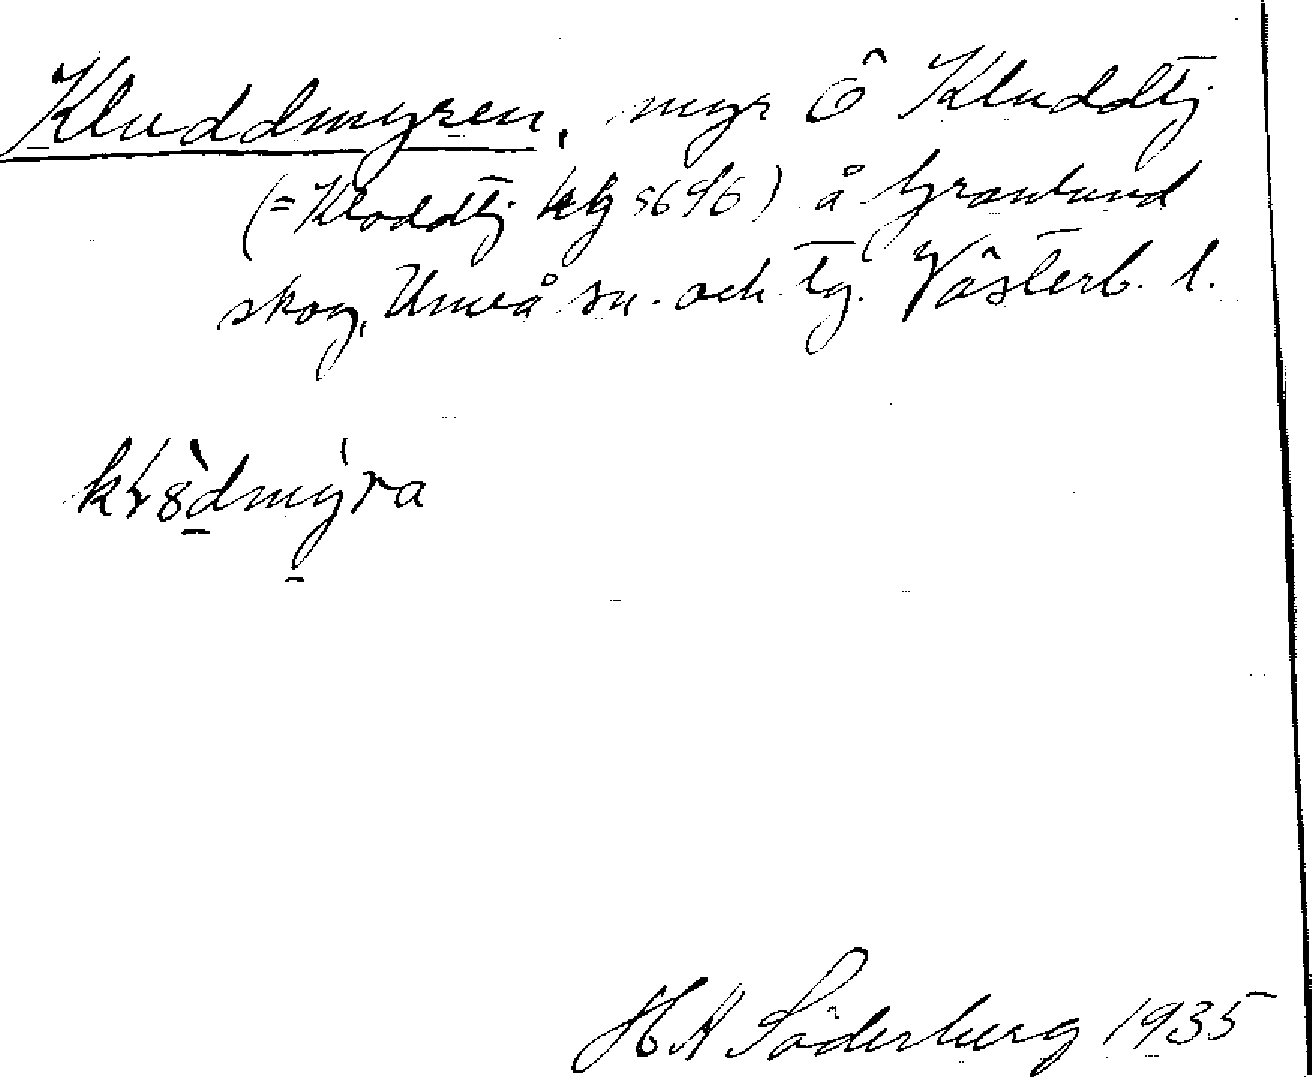 Kluddmyren, myr Ö Kluddtj
(= Kloddtj kbg 5696) å Granlund
skog, Umeå sn. och tg. Västerb. l.
HA Söderberg 1935